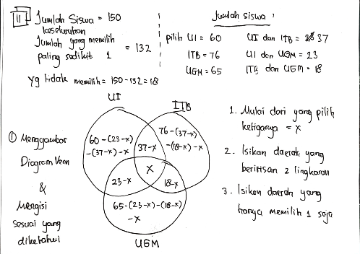 11
Jumlah Siswa = 150
keseluruhan
Jumlah yang memilih
paling sedikit 1 = 132
yg tidak memilih = 150 - 132 = 18
Jumlah siswa :
pilih UI = 60
ITB = 76
UGM = 65
UI dan ITB = 37
UI dan UGM = 23
ITB dan UGM = 18
① Menggambar
Diagram Venn
&
Mengisi
sesuai yang
diketahui
UI
ITB
60-(23-x)
-(37-x)-x
76-(37-x)
-(18-x)-x
37-x
x
23-x
18-x
65-(23-x)-(18-x)
-x
UGM
1. Mulai dari yang pilih
ketiganya = x
2. Isikan daerah yang
beririsan 2 lingkaran
3. Isikan daerah yang
hanya memilih 1 saja